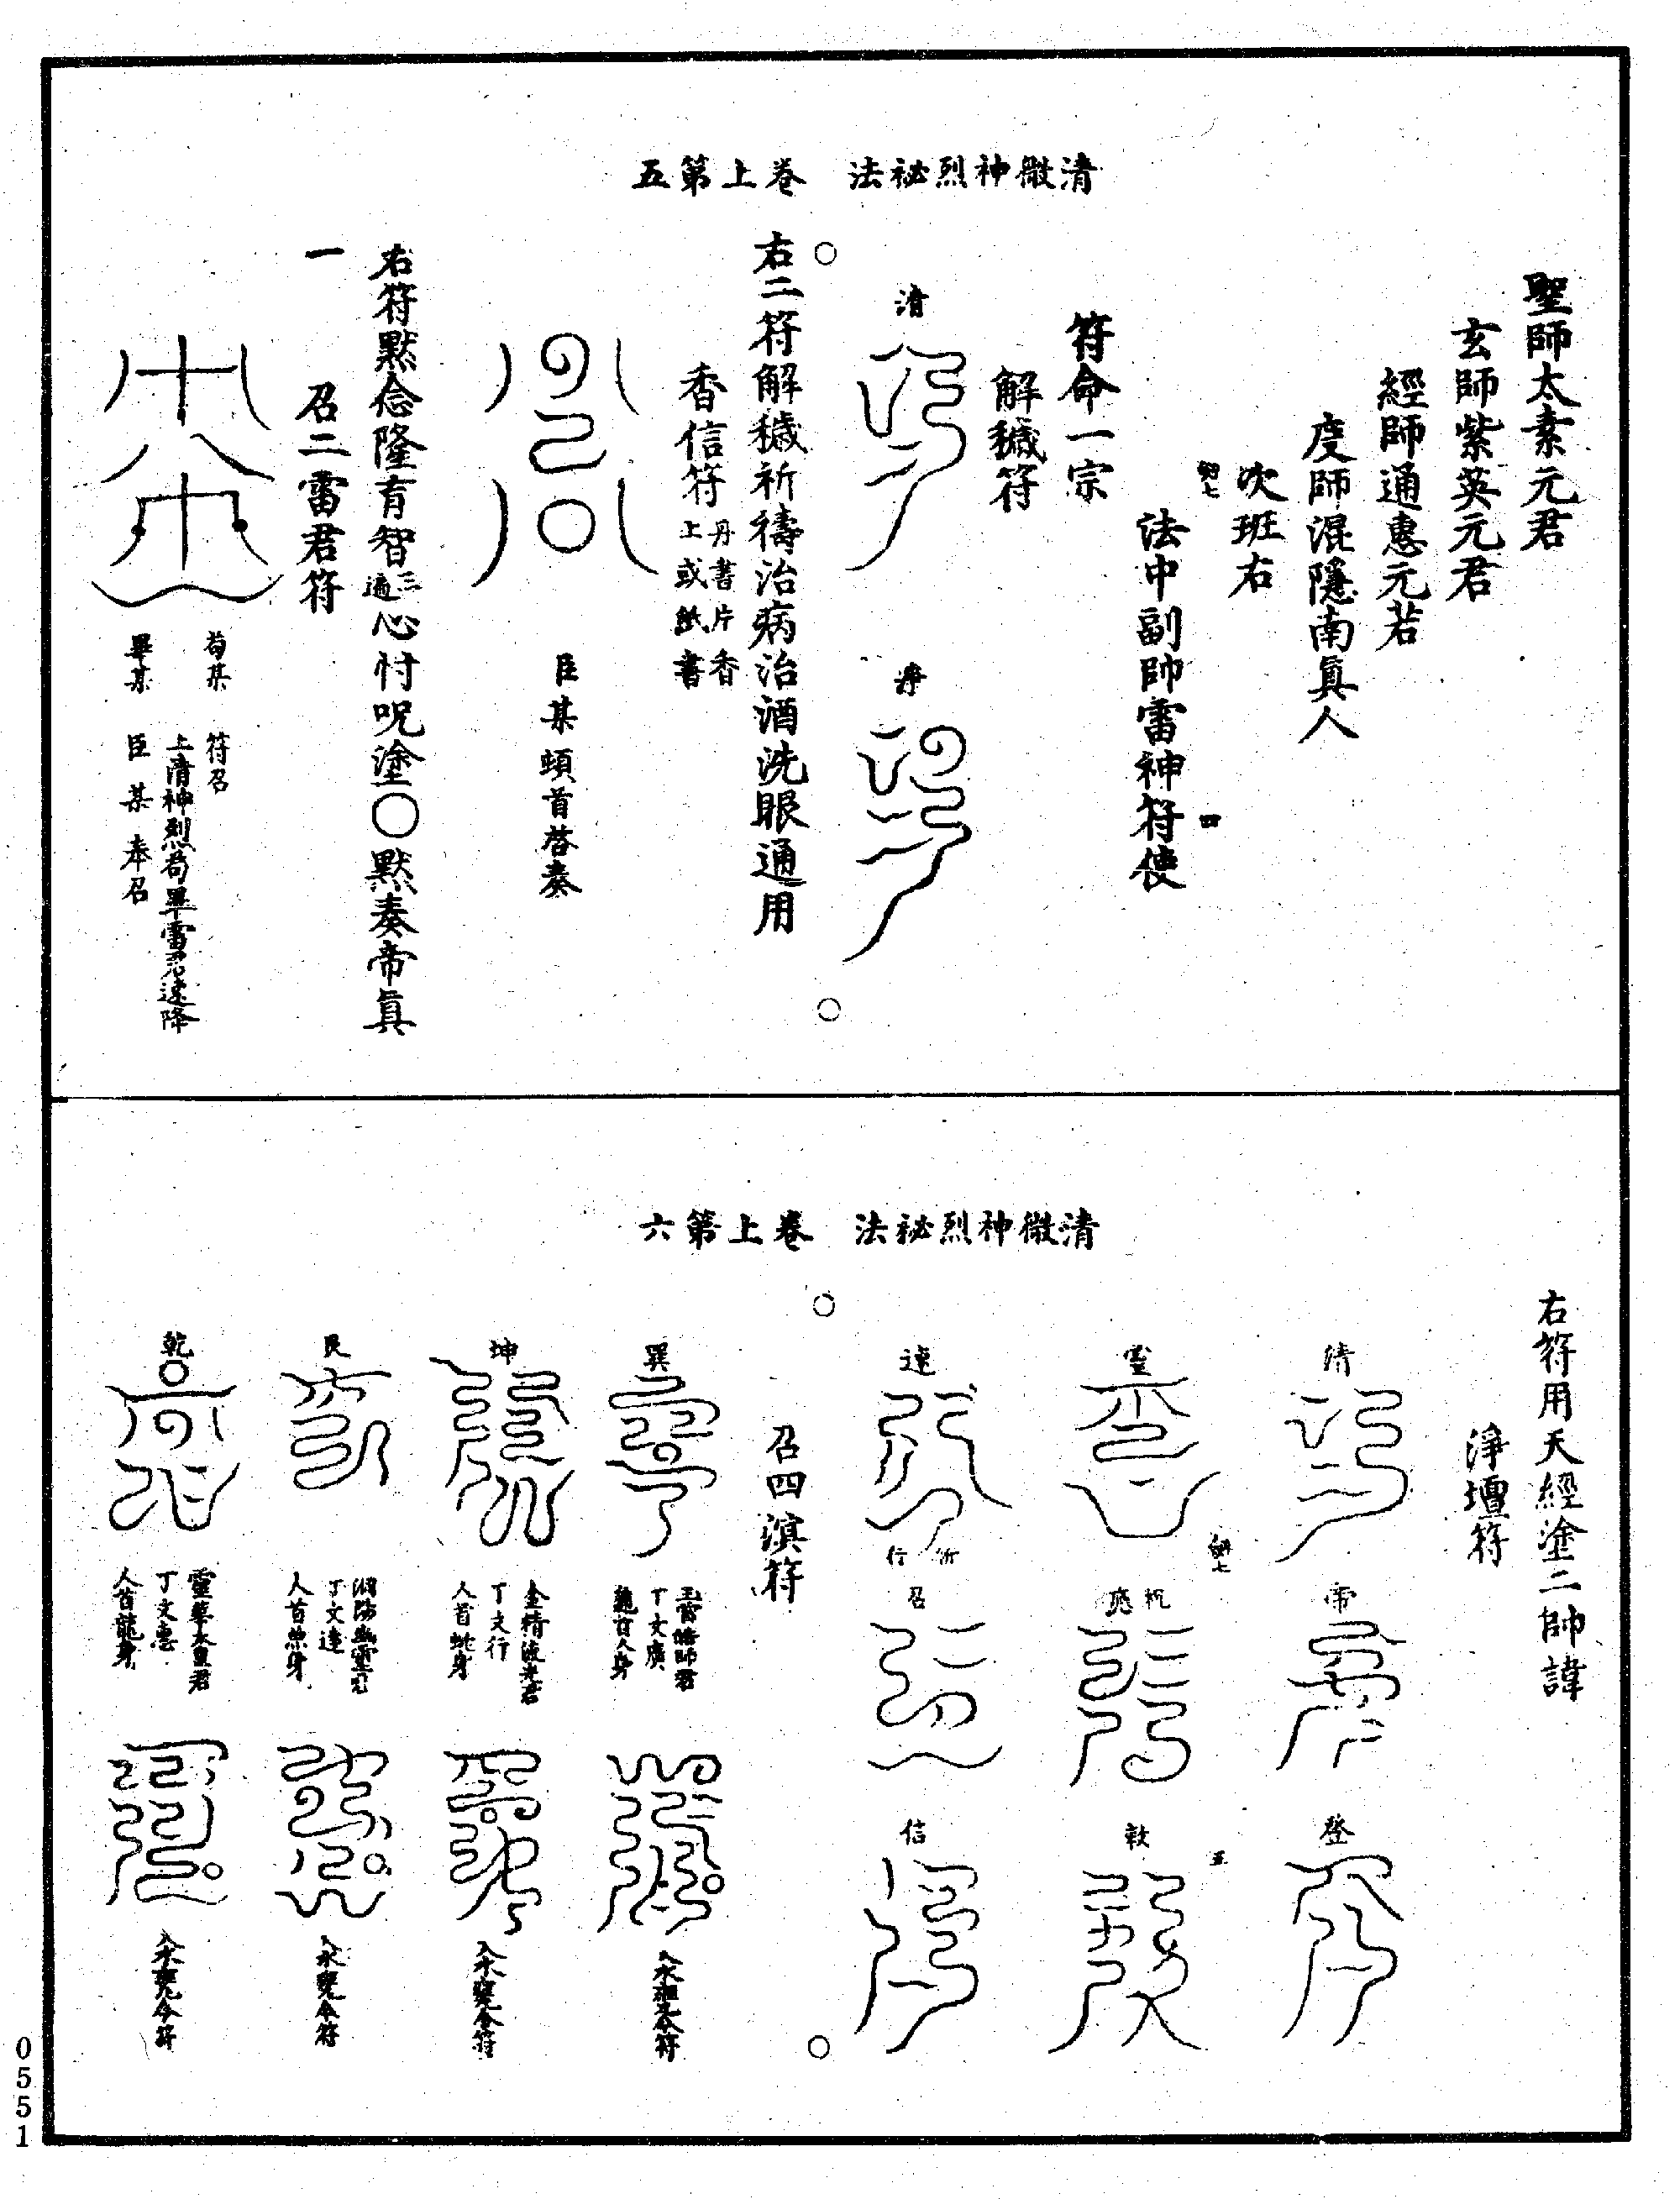 清微神烈祕法 卷上第五
聖師太素元君
玄師紫英元君
經師通惠元若
度師混隱南眞人
次班右
四
法中副帥雷神符使
符命一宗
解穢符
清
右二符解穢祈禱治病治酒洗眼通用
香信符丹書片香上或紙書
臣某頓首啓奏
右符默念隆育智三遍心忖呪塗〇默奏帝眞
一召二雷君符
苟某 符召
上清神烈苟畢雷君速降
畢某 臣某奉召
清微神烈祕法 卷上第六
右符用天經塗二帥諱
淨壇符
清
帝
登
五
靈
敕
速
召
信
召四滨符
巽
丁文廣
坤
金精
丁文行
人首蛇身
艮
丁文達
人首魚身
乾
丁文惠
人首龍身
入水甕令符
入水甕令符
入水甕令符
入水甕令符
0551